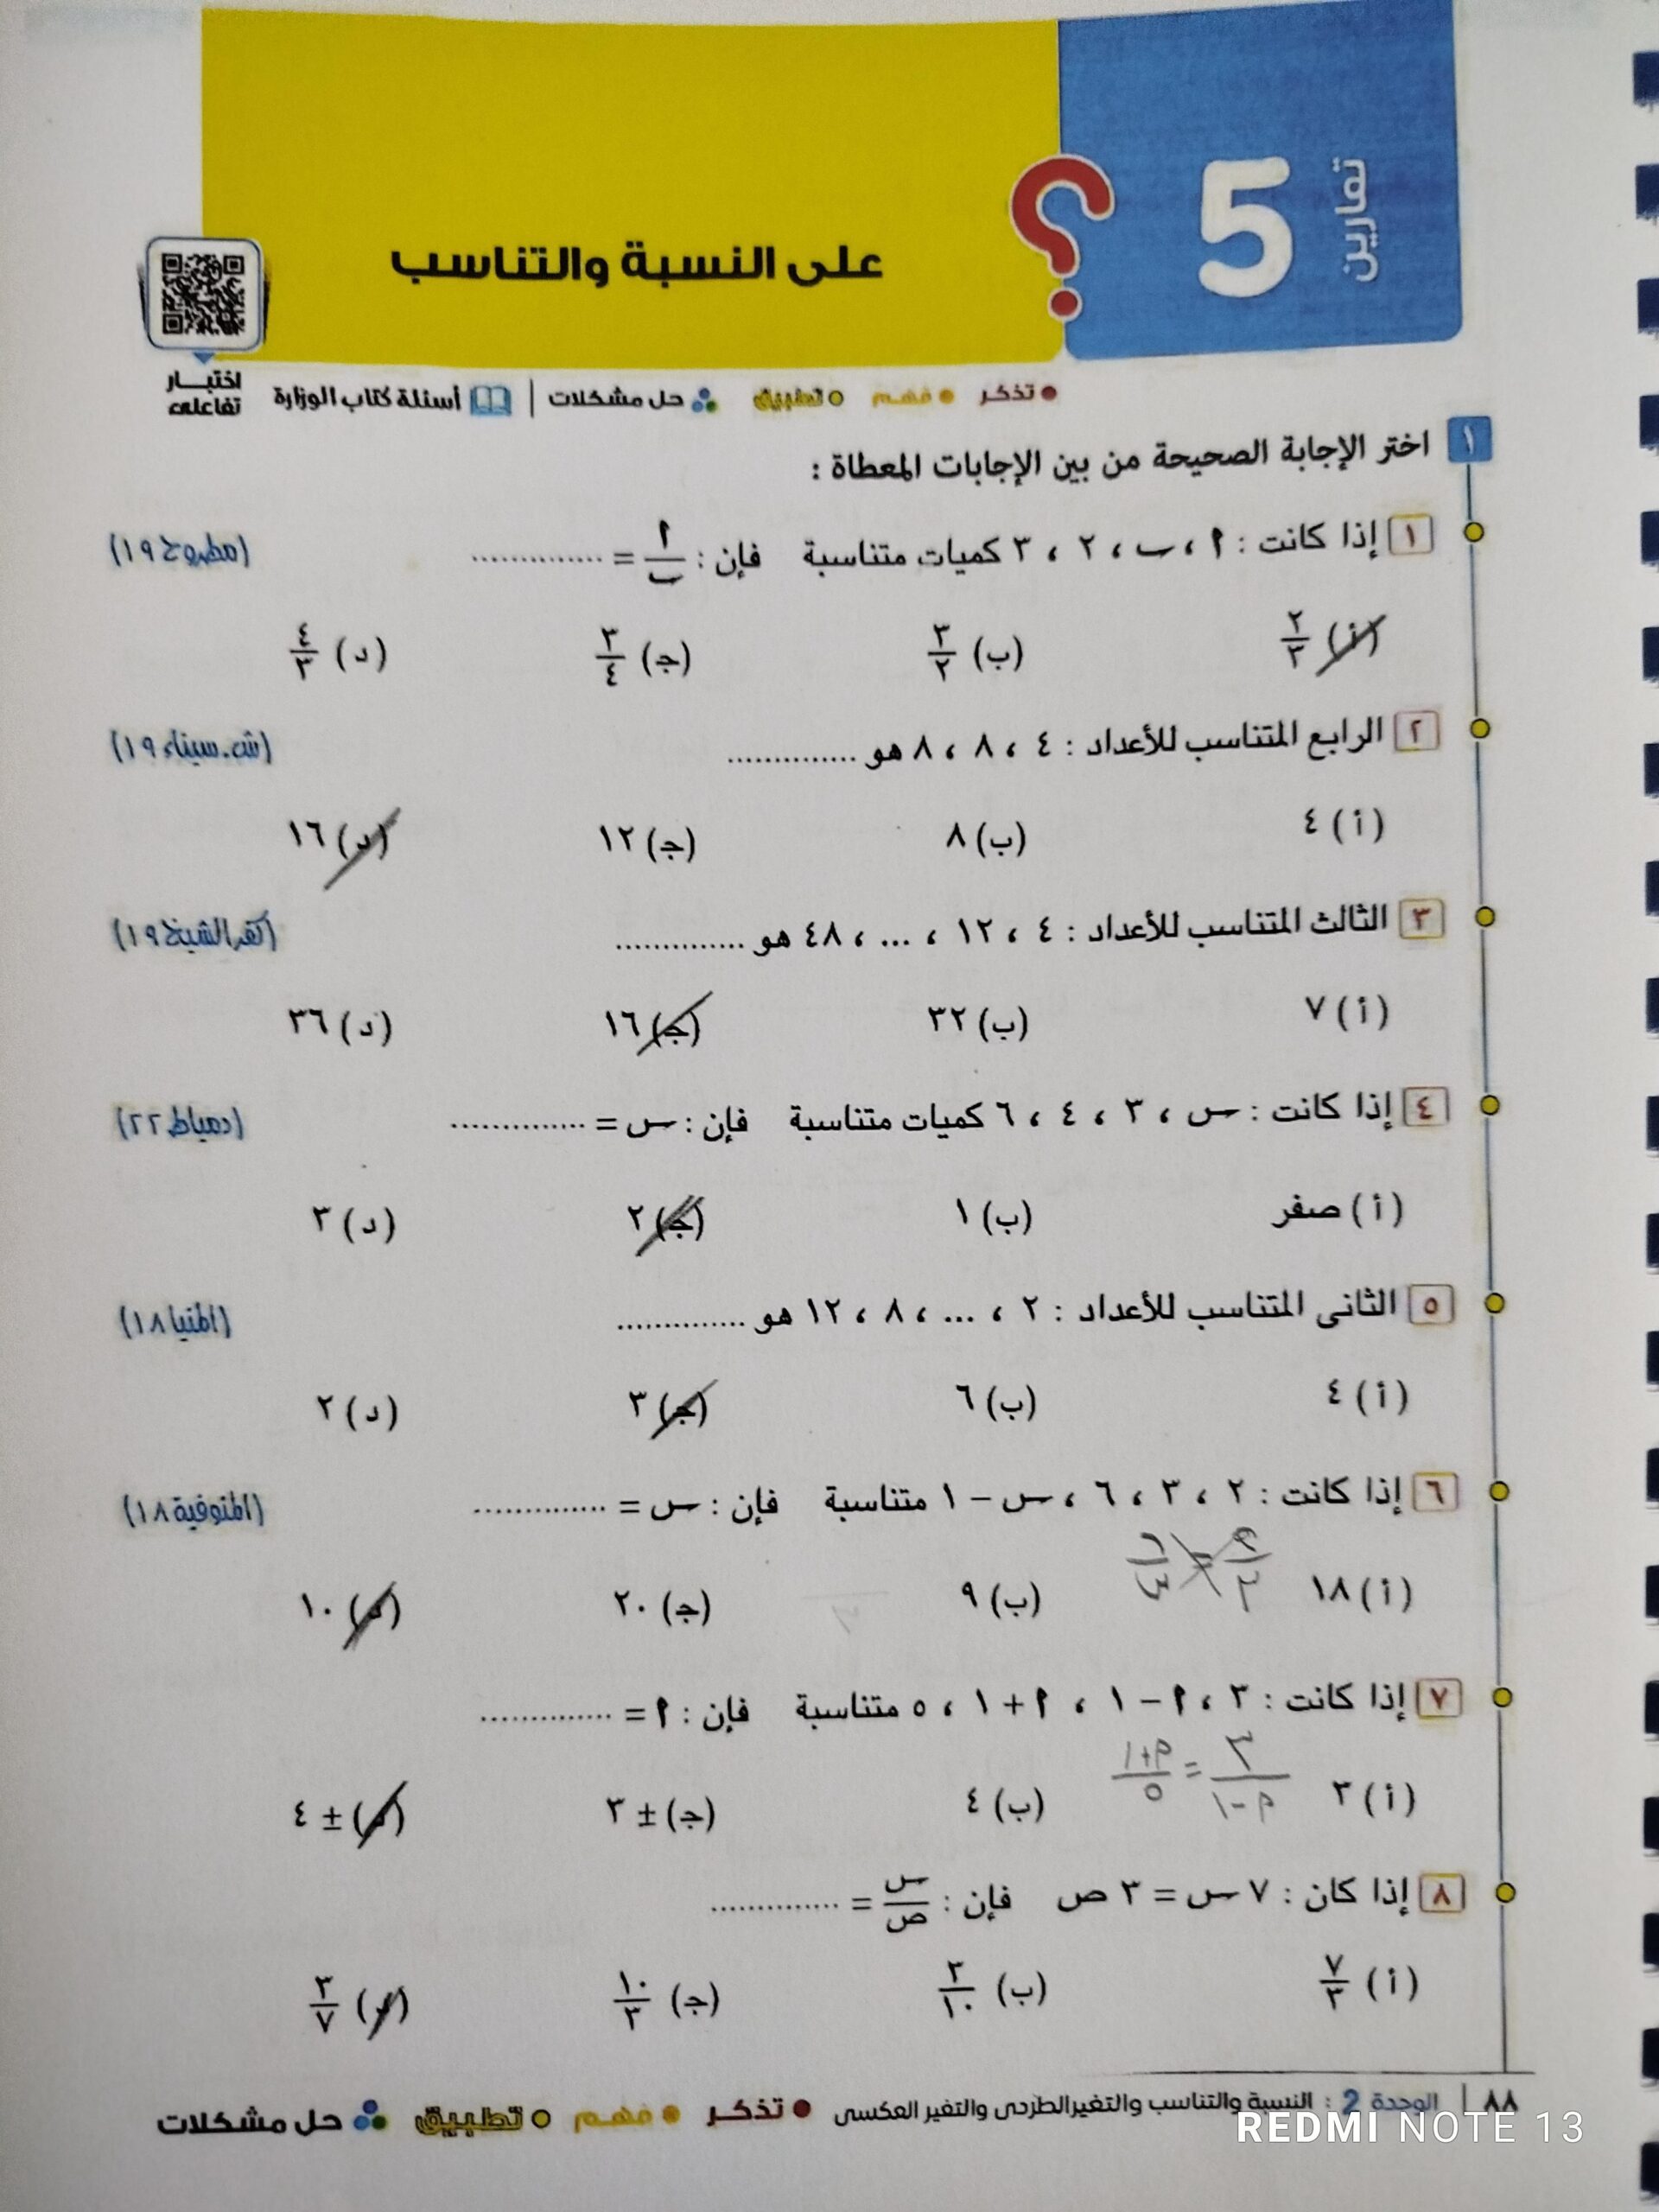 تمارين 5
على النسبة والتناسب
اختبار تفاعلى
تذكر فهم تطبيق حل مشكلات | أسئلة كتاب الوزارة
١ اختر الإجابة الصحيحة من بين الإجابات المعطاة :
١ إذا كانت : ٢ ، ب ، ٢ ، ٣ كميات متناسبة فإن : ٢/ب = .............. (مطروح ١٩)
(أ) ٢/٣ (ب) ٣/٢ (جـ) ٣/٤ (د) ٤/٣
٢ الرابع المتناسب للأعداد : ٤ ، ٨ ، ٨ هو .............. (ش. سيناء ١٩)
(أ) ٤ (ب) ٨ (جـ) ١٢ (د) ١٦
٣ الثالث المتناسب للأعداد : ٤ ، ١٢ ، ... ، ٤٨ هو .............. (كفر الشيخ ١٩)
(أ) ٧ (ب) ٣٢ (جـ) ١٦ (د) ٣٦
٤ إذا كانت : س ، ٣ ، ٤ ، ٦ كميات متناسبة فإن : س = .............. (دمياط ٢٢)
(أ) صفر (ب) ١ (جـ) ٢ (د) ٣
٥ الثانى المتناسب للأعداد : ٢ ، ... ، ٨ ، ١٢ هو .............. (المنيا ١٨)
(أ) ٤ (ب) ٦ (جـ) ٣ (د) ٢
٦ إذا كانت : ٢ ، ٣ ، ٦ ، س − ١ متناسبة فإن : س = .............. (المنوفية ١٨)
٢/٣ = ٦/س
(أ) ١٨ (ب) ٩ (جـ) ٢٠ (د) ١٠
٧ إذا كانت : ٣ ، ٢ − ١ ، ٢ + ١ ، ٥ متناسبة فإن : ٢ = ..............
٣/٢−١ = ٢+١/٥
(أ) ٣ (ب) ٤ (جـ) ± ٣ (د) ± ٤
٨ إذا كان : ٧ س = ٣ ص فإن : س/ص = ..............
(أ) ٧/٣ (ب) ٣/١٠ (جـ) ١٠/٣ (د) ٣/٧
٨٨ | الوحدة 2 : النسبة والتناسب والتغير الطردى والتغير العكسى تذكر فهم تطبيق حل مشكلات
REDMI NOTE 13